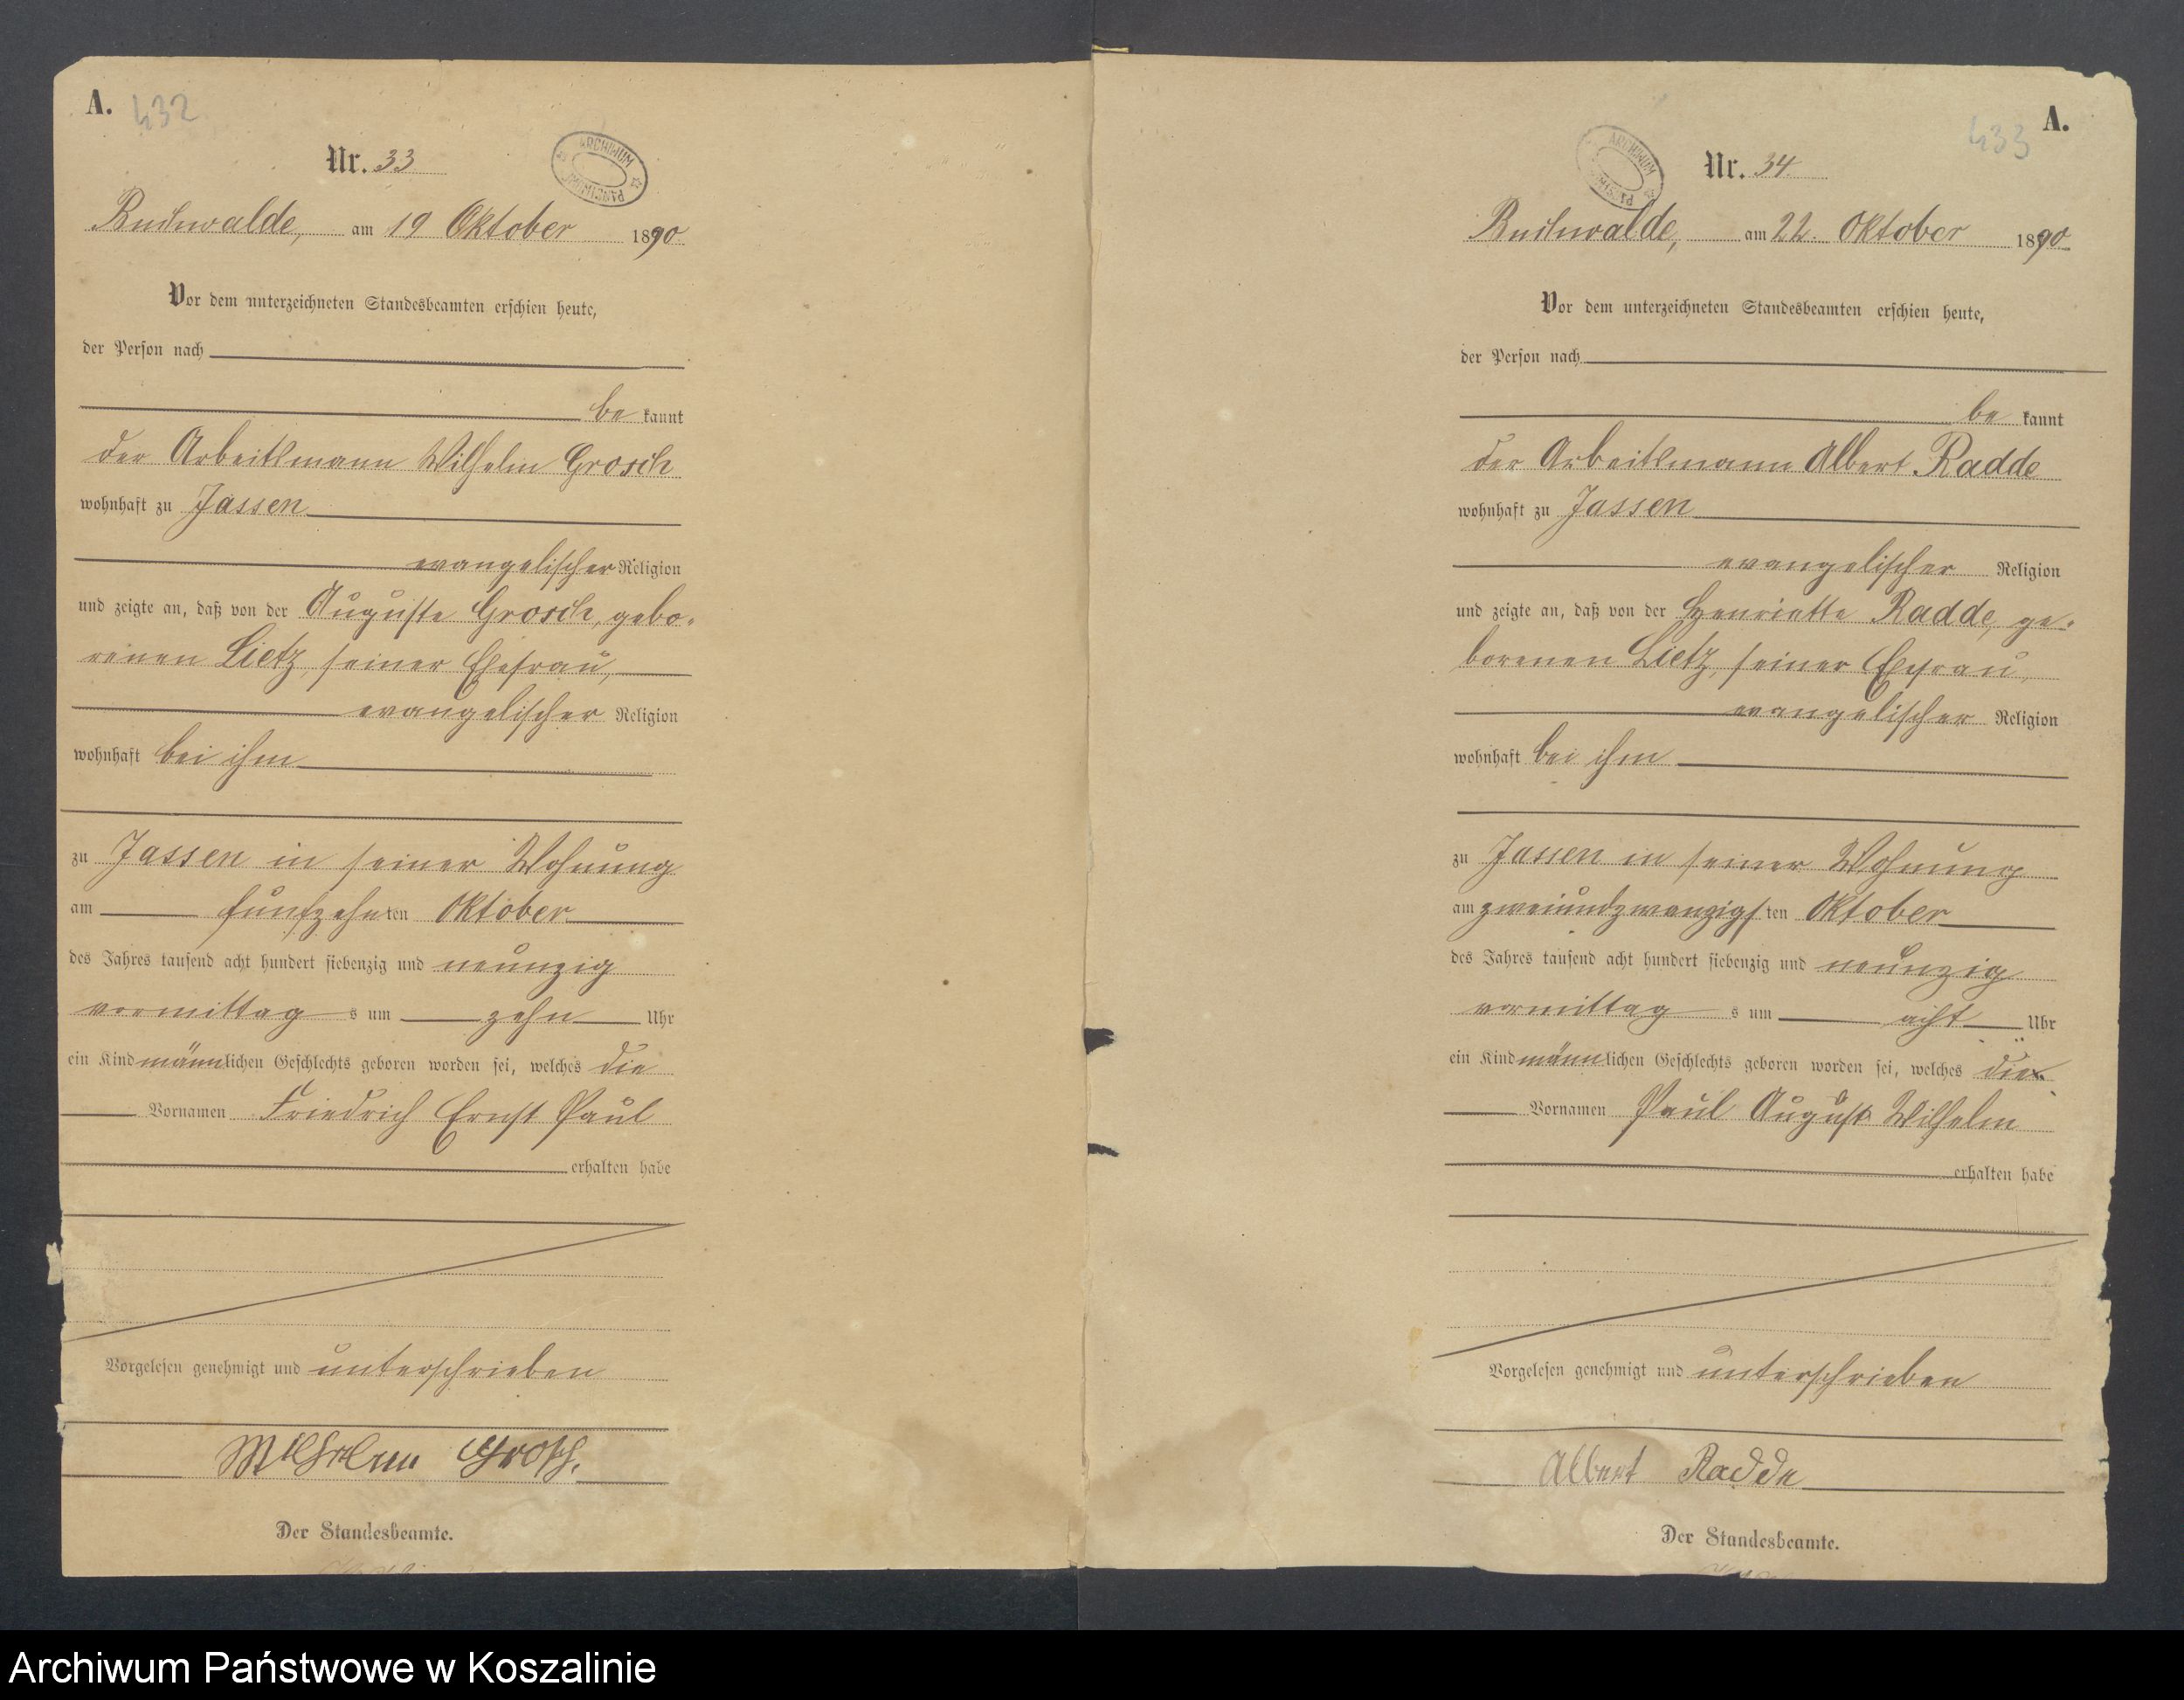 A. 432
ARCHIWUM PAŃSTWOWE
Nr. 33
Buchwalde, am 19 Oktober 1890.
Vor dem unterzeichneten Standesbeamten erschien heute,
der Person nach
be kannt
der Arbeitsmann Wilhelm Grosch
wohnhaft zu Jassen
evangelischer Religion
und zeigte an, daß von der Auguste Grosch, gebo-
renen Lietz, seiner Ehefrau,
evangelischer Religion
wohnhaft bei ihm
zu Jassen in seiner Wohnung
am fünfzehnten Oktober
des Jahres tausend acht hundert siebenzig und neunzig
vormittag s um zehn Uhr
ein Kind männlichen Geschlechts geboren worden sei, welches die
Vornamen Friedrich Ernst Paul
erhalten habe
Vorgelesen genehmigt und unterschrieben
Wilhelm Grosch.
Der Standesbeamte.
433 A.
ARCHIWUM PAŃSTWOWE
Nr. 34
Buchwalde, am 22. Oktober 1890.
Vor dem unterzeichneten Standesbeamten erschien heute,
der Person nach
be kannt
der Arbeitsmann Albert Radde
wohnhaft zu Jassen
evangelischer Religion
und zeigte an, daß von der Henriette Radde, ge-
borenen Lietz, seiner Ehefrau,
evangelischer Religion
wohnhaft bei ihm
zu Jassen in seiner Wohnung
am zweiundzwanzigsten Oktober
des Jahres tausend acht hundert siebenzig und neunzig
vormittag s um acht Uhr
ein Kind männlichen Geschlechts geboren worden sei, welches die
Vornamen Paul August Wilhelm
erhalten habe
Vorgelesen genehmigt und unterschrieben
Albert Radde
Der Standesbeamte.
Archiwum Państwowe w Koszalinie